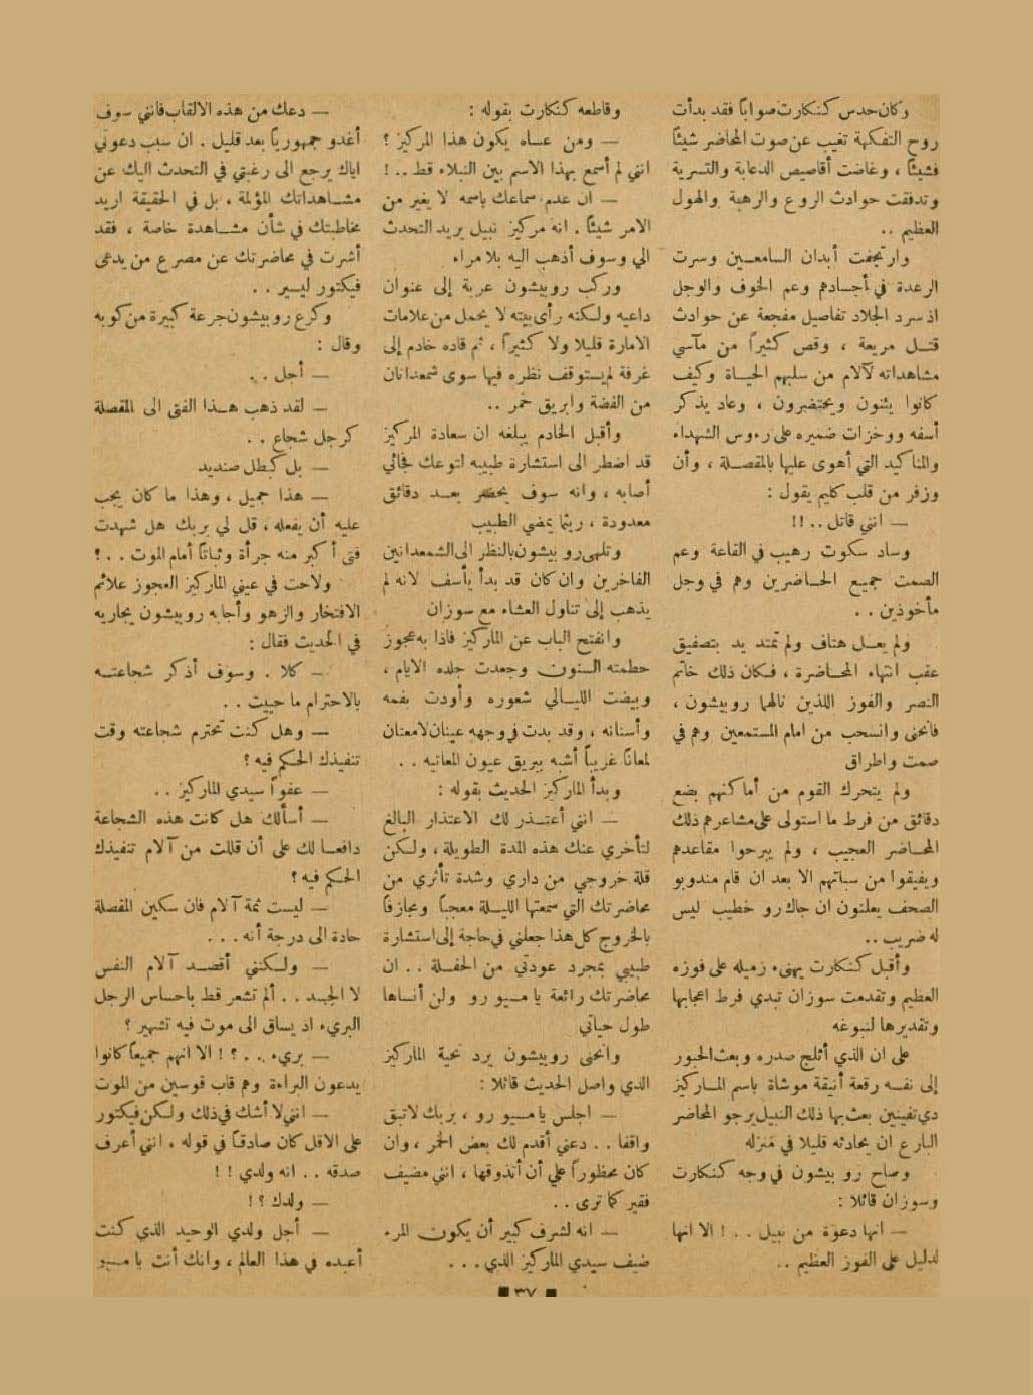 وكان حدس كنكارت صوابا فقد بدأت
روح التفكهة تغيب عن صوت المحاضر شيئاً
فشيئاً ، وغاضت أقاصيص الدعابة والتسرية
وتدفقت حوادث الروع والرهبة والهول
العظيم ..
وارتجفت أبدان السامعين وسرت
الرعدة في أجسادهم وعم الخوف والوجل
اذ سرد الجلاد تفاصيل مفجعة عن حوادث
قتل مريعة ، وقص كثيراً من مآسي
مشاهداته لآلام من سلبهم الحياة وكيف
كانوا يئنون ويحتضرون ، وعاد يذكر
أسفه ووخزات ضميره على رءوس الشهداء
والمناكيد التي أهوى عليها بالمقصلة ، وأن
وزفر من قلب كليم يقول :
— انني قاتل .. !!
وساد سكوت رهيب في القاعة وعم
الصمت جميع الحاضرين وهم في وجل
مأخوذين ..
ولم يعل هتاف ولم تمتد يد بتصفيق
عقب انتهاء المحاضرة ، فكان ذلك خاتم
النصر والفوز اللذين نالهما روبيشون ،
فانحنى وانسحب من امام المستمعين وهم في
صمت واطراق
ولم يتحرك القوم من أماكنهم بضع
دقائق من فرط ما استولى على مشاعرهم ذلك
المحاضر العجيب ، ولم يبرحوا مقاعدهم
ويفيقوا من سباتهم الا بعد ان قام مندوبو
الصحف يعلنون ان جاك رو خطيب ليس
له ضريب ..
وأقبل كنكارت يهنىء زميله على فوزه
العظيم وتقدمت سوزان تبدي فرط اعجابها
وتقديرها لنبوغه
على ان الذي أثلج صدره وبعث الحبور
إلى نفسه رقعة أنيقة موشاة باسم الماركيز
دي تفينين بعث بها ذلك النبيل يرجو المحاضر
البارع ان يحادثه قليلا في منزله
وصاح روبيشون في وجه كنكارت
وسوزان قائلا :
— انها دعوة من نبيل .. ! الا انها
لدليل على الفوز العظيم ..
وقاطعه كنكارت بقوله :
— ومن عساه يكون هذا المركيز ؟
انني لم أسمع بهذا الاسم بين النبلاء قط .. !
— ان عدم سماعك باسمه لا يغير من
الامر شيئاً . انه مركيز نبيل يريد التحدث
الي وسوف أذهب اليه بلا مراء
وركب روبيشون عربة إلى عنوان
داعيه ولكنه رأى بيته لا يحمل من علامات
الامارة قليلا ولا كثيراً ، ثم قاده خادم إلى
غرفة لم يستوقف نظره فيها سوى شمعدانان
من الفضة وابريق خمر ..
وأقبل الخادم يبلغه ان سعادة المركيز
قد اضطر الى استشارة طبيبه لتوعك فجائي
أصابه ، وانه سوف يحضر بعد دقائق
معدودة ، ريثما يمضي الطبيب
وتلهى روبيشون بالنظر الى الشمعدانين
الفاخرين وان كان قد بدأ يأسف لانه لم
يذهب إلى تناول العشاء مع سوزان
وانفتح الباب عن الماركيز فاذا به عجوز
حطمته السنون وجعدت جلده الايام ،
وبيضت الليالي شعوره وأودت بفمه
وأسنانه ، وقد بدت في وجهه عينان لامعتان
لمعاناً غريباً أشبه ببريق عيون المعاتيه ..
وبدأ الماركيز الحديث بقوله :
— انني أعتذر لك الاعتذار البالغ
لتأخري عنك هذه المدة الطويلة ، ولكن
قلة خروجي من داري وشدة تأثري من
محاضرتك التي سمعتها الليلة معجباً ومجازفاً
بالخروج كل هذا جعلني في حاجة إلى استشارة
طبيبي بمجرد عودتي من الحفلة .. ان
محاضرتك رائعة يا مسيو رو ولن أنساها
طول حياتي
وانحنى روبيشون يرد تحية الماركيز
الذي واصل الحديث قائلا :
— اجلس يا مسيو رو ، بربك لا تبق
واقفا .. دعني أقدم لك بعض الخمر ، وان
كان محظوراً علي أن أتذوقها ، انني مضيف
فقير كما ترى ..
— انه لشرف كبير أن يكون المرء
ضيف سيدي الماركيز الذي ...
— دعك من هذه الالقاب فانني سوف
أغدو جمهورياً بعد قليل . ان سبب دعوتي
اياك يرجع الى رغبتي في التحدث اليك عن
مشاهداتك المؤلمة ، بل في الحقيقة اريد
مخاطبتك في شأن مشاهدة خاصة ، فقد
أشرت في محاضرتك عن مصرع من يدعى
فيكتور ليسير ..
وكرع روبيشون جرعة كبيرة من كوبه
وقال :
— أجل ..
— لقد ذهب هذا الفتى الى المقصلة
كرجل شجاع ..
— بل كبطل صنديد
— هذا جميل ، وهذا ما كان يجب
عليه أن يفعله ، قل لي بربك هل شهدت
فتى أكبر منه جرأة وثباتاً أمام الموت .. ؟
ولاحت في عيني الماركيز العجوز علائم
الافتخار والزهو وأجابه روبيشون يجاريه
في الحديث فقال :
— كلا . وسوف أذكر شجاعته
بالاحترام ما حييت ..
— وهل كنت تحترم شجاعته وقت
تنفيذك الحكم فيه ؟
— عفواً سيدي الماركيز ..
— أسألك هل كانت هذه الشجاعة
دافعا لك على أن قللت من آلام تنفيذك
الحكم فيه ؟
— ليست ثمة آلام فان سكين المقصلة
حادة الى درجة أنه ...
— ولكنني أقصد آلام النفس
لا الجسد .. ألم تشعر قط باحساس الرجل
البريء اذ يساق الى موت فيه تشهير ؟
— بريء .. ؟ ! الا انهم جميعاً كانوا
يدعون البراءة وهم قاب قوسين من الموت
— انني لا أشك في ذلك ولكن فيكتور
على الاقل كان صادقاً في قوله ، انني أعرف
صدقه .. انه ولدي ! !
— ولدك ؟ !
— أجل ولدي الوحيد الذي كنت
أعبده في هذا العالم ، وانك أنت يا مسيو
٣٧